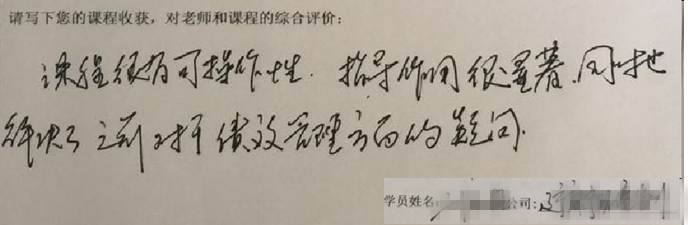 请写下您的课程收获，对老师和课程的综合评价：
课程很有可操作性，指导作用很显著，同时也
解决了之前对于绩效管理方面的疑问。
学员姓名： 公司：